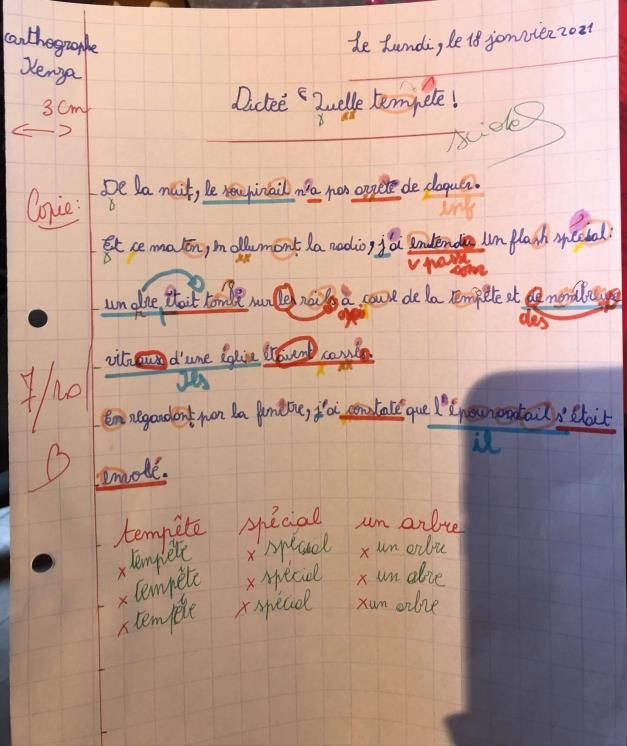 orthographe
Kenza
Le Lundi, le 18 janvier 2021
3 cm
Dicteé "Quelle tempête !
Copie:
De la nuit, le soupirail n'a pas arrêté de claquer.
inf
Et ce matin, en allumant la radio, j'ai entendu un flash spécial:
v passé com
un abre était tombé sur les rails à cause de la tempête et de nombreux
des
vitreaux d'une église étaient cassé.
Ils
7/10
B
En regardant par la fenêtre, j'ai constaté que l'épouvantail s'était
il
envolé.
tempête spécial un arbre
x tempête x spécial x un arbre
x tempête x spécial x un abre
x tempête x spécial x un arbre